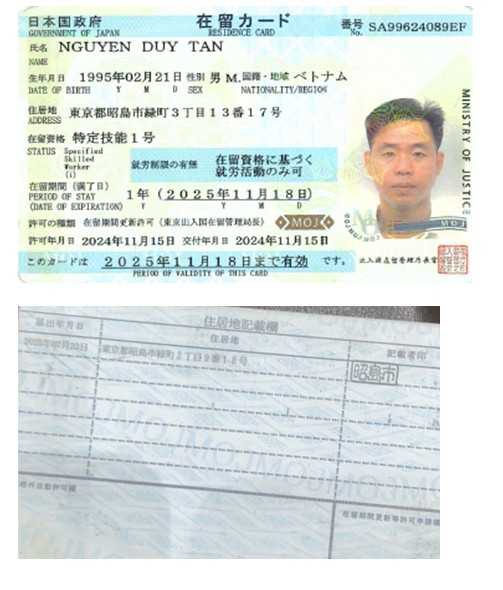 日本国政府 在留カード 番号 SA99624089EF
GOVERNMENT OF JAPAN RESIDENCE CARD No.
氏名 NGUYEN DUY TAN
NAME
生年月日 1995年02月21日 性別 男 M. 国籍・地域 ベトナム
DATE OF BIRTH Y M D SEX NATIONALITY/REGION
住居地 東京都昭島市緑町3丁目13番17号
ADDRESS
在留資格 特定技能1号
STATUS Specified Skilled Worker (i)
就労制限の有無 在留資格に基づく就労活動のみ可
在留期間(満了日) 1年(2025年11月18日)
PERIOD OF STAY (DATE OF EXPIRATION) Y M D
許可の種類 在留期間更新許可(東京出入国在留管理局長) MOJ
許可年月日 2024年11月15日 交付年月日 2024年11月15日
このカードは 2025年11月18日まで有効 です。
PERIOD OF VALIDITY OF THIS CARD
MINISTRY OF JUSTICE
MOJ
出入国在留管理庁長官
届出年月日 住居地記載欄
住居地 記載者印
東京都昭島市緑町2丁目9番18号 昭島市
在留期間更新等許可申請欄